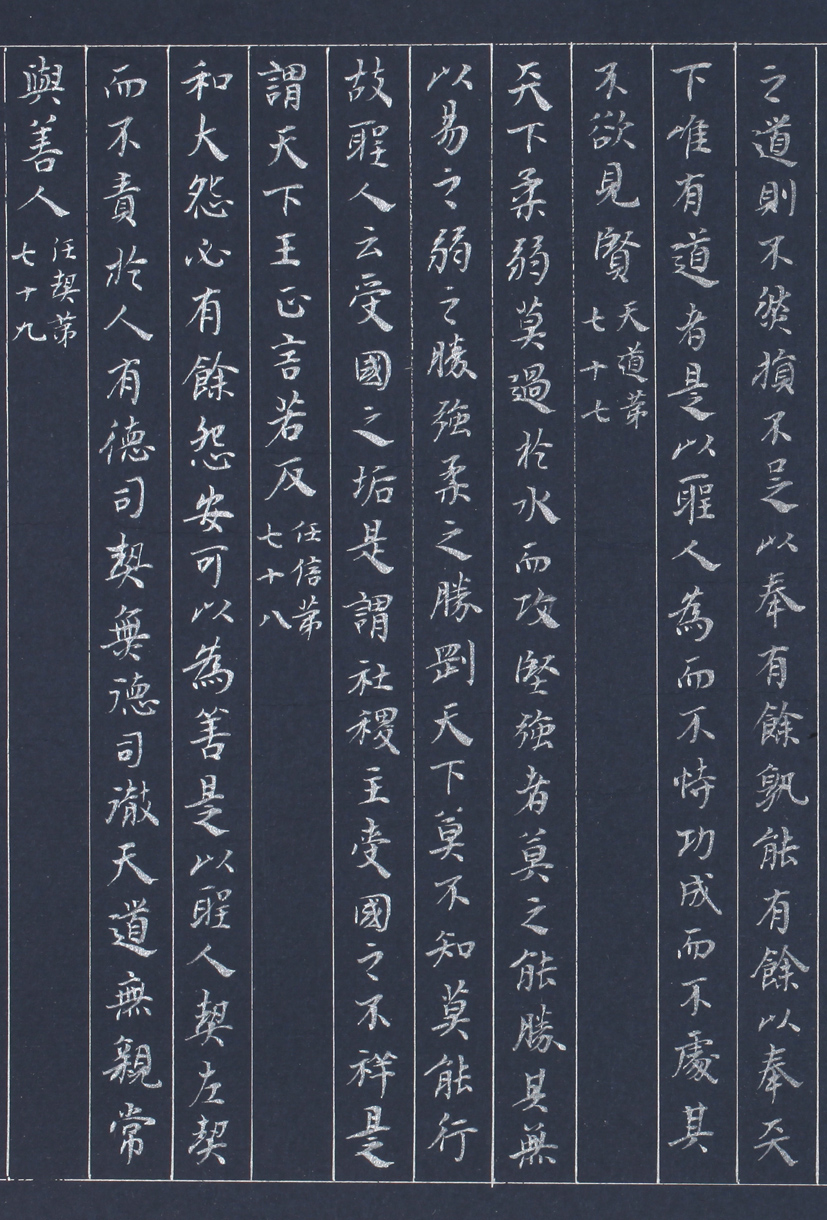 之道則不然損不足以奉有餘孰能有餘以奉天
下唯有道者是以聖人為而不恃功成而不處其
不欲見賢天道第七十七
天下柔弱莫過於水而攻堅強者莫之能勝其無
以易之弱之勝強柔之勝剛天下莫不知莫能行
故聖人云受國之垢是謂社稷主受國之不祥是
謂天下王正言若反任信第七十八
和大怨必有餘怨安可以為善是以聖人契左契
而不責於人有德司契無德司徹天道無親常
與善人任契第七十九